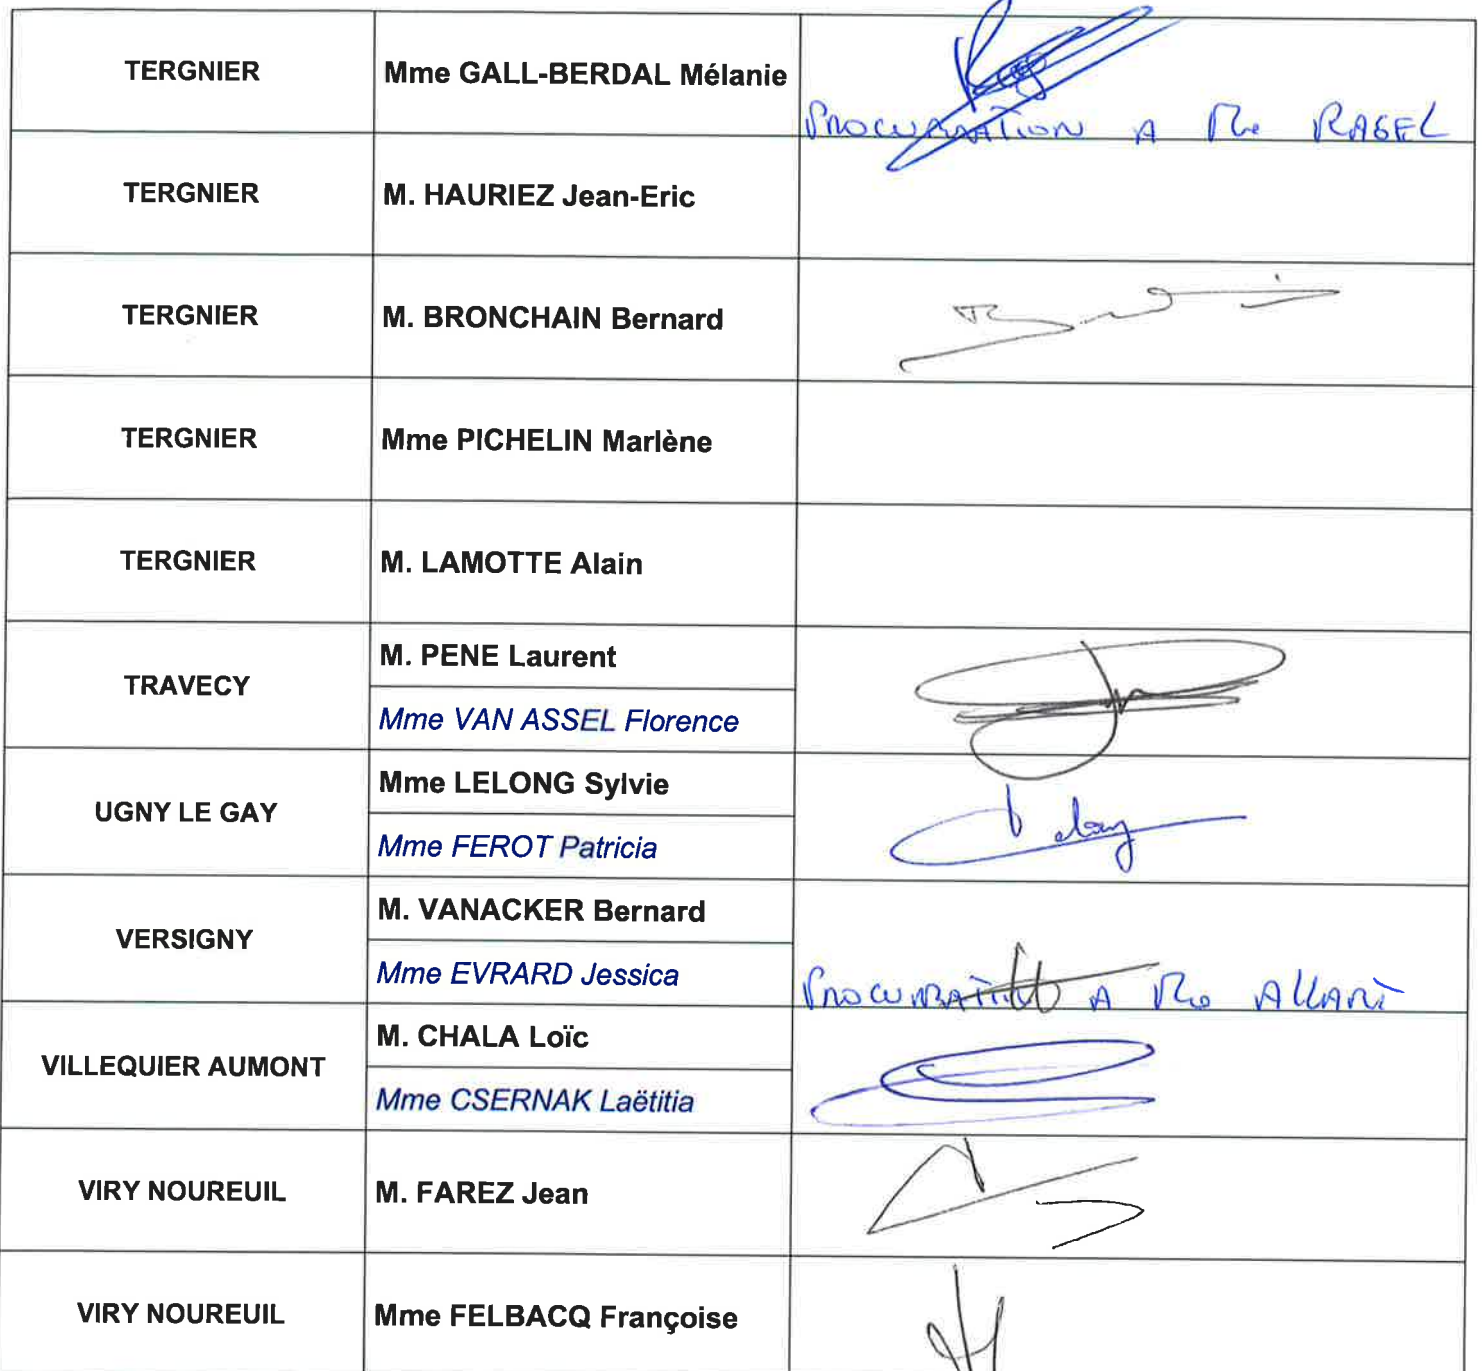 TERGNIER Mme GALL-BERDAL Mélanie
PROCURATION A RAGEL
TERGNIER M. HAURIEZ Jean-Eric
TERGNIER M. BRONCHAIN Bernard
TERGNIER Mme PICHELIN Marlène
TERGNIER M. LAMOTTE Alain
M. PENE Laurent
TRAVECY
Mme VAN ASSEL Florence
Mme LELONG Sylvie
UGNY LE GAY
Mme FEROT Patricia
M. VANACKER Bernard
VERSIGNY
Mme EVRARD Jessica
PROCURATION A
M. CHALA Loïc
VILLEQUIER AUMONT
Mme CSERNAK Laëtitia
VIRY NOUREUIL M. FAREZ Jean
VIRY NOUREUIL Mme FELBACQ Françoise